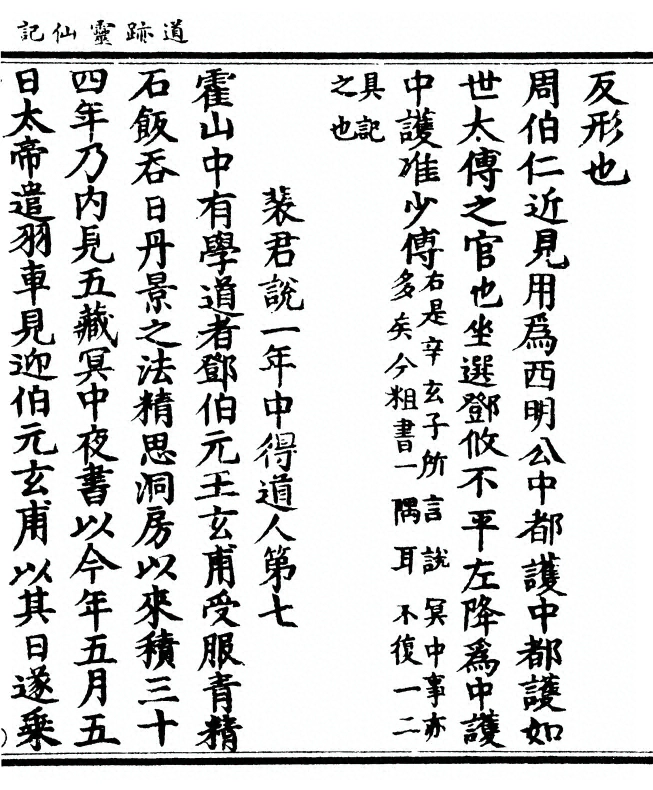 道跡靈仙記
反形也
周伯仁近見用爲西明公中都護中都護如
世太傅之官也坐選鄧攸不平左降爲中護
中護准少傅
右是辛玄子所言說冥中事亦
多矣今粗書一隅耳不復一二
具記
之也
裴君說一年中得道人第七
霍山中有學道者鄧伯元王玄甫受服青精
石飯吞日丹景之法精思洞房以來積三十
四年乃內見五藏冥中夜書以今年五月五
日太帝遣羽車見迎伯元玄甫以其日遂乗